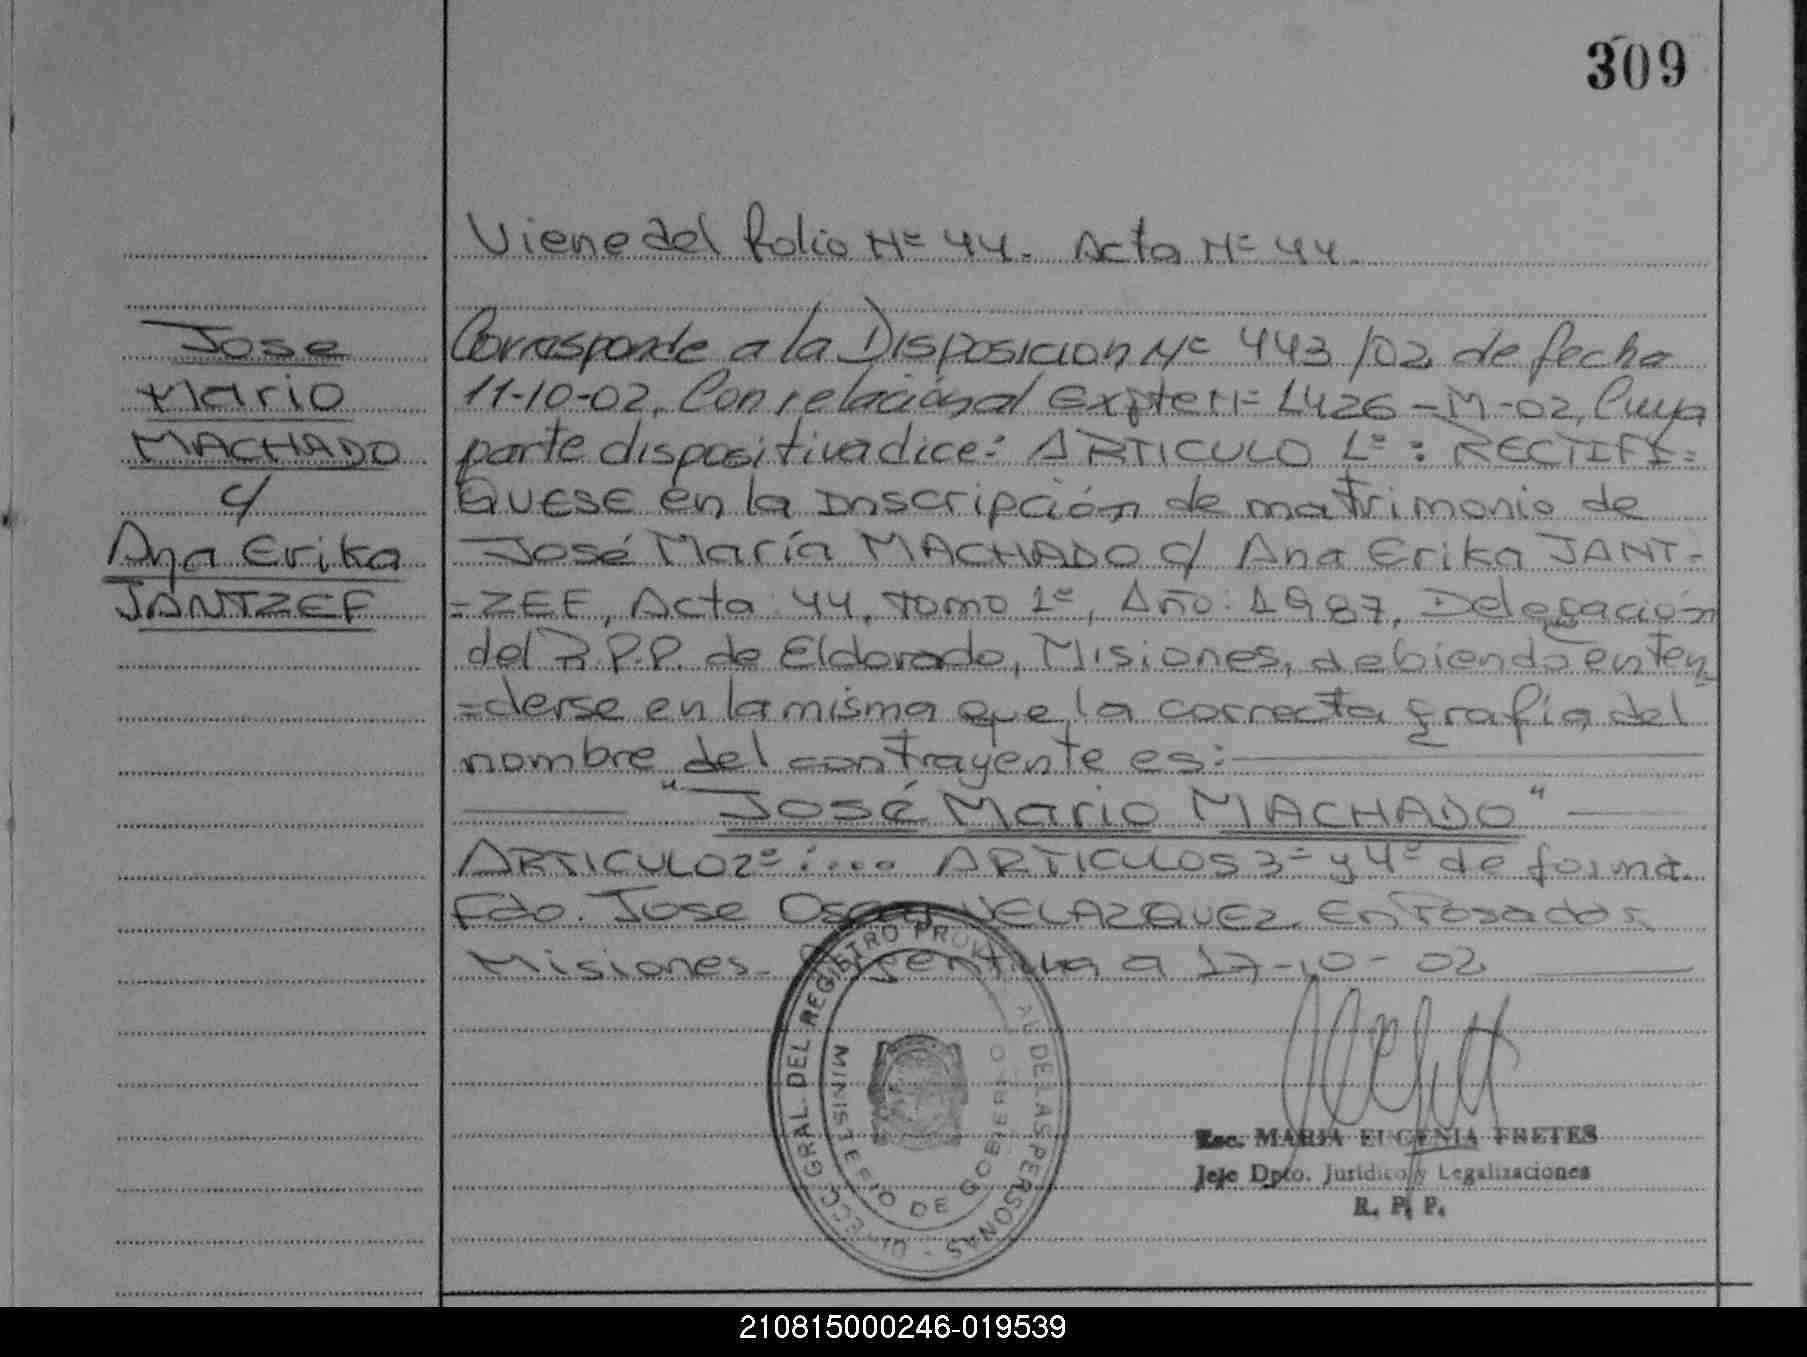 309
Viene del folio Nº 44. Acta Nº 44.
Jose
Mario
MACHADO
c/
Ana Erika
JANTZEF
Corresponde a la Disposicion Nº 443/02 de fecha
11-10-02, Con relación al Expte Nº 1426-M-02, Cuya
parte dispositiva dice: ARTICULO 1º: RECTIFI=
QUESE en la Inscripción de matrimonio de
José María MACHADO c/ Ana Erika JANT-
=ZEF, Acta: 44, Tomo 1º, Año: 1987, Delegación
del R.P.P. de Eldorado, Misiones, debiendo enten
=derse en la misma que la correcta grafía del
nombre del contrayente es:
"José Mario MACHADO"
ARTICULO 2º:.... ARTICULOS 3º y 4º de forma.
Fdo. Jose Oscar VELAZQUEZ. En Posadas,
Misiones. Argentina a 17-10-02
GRAL. DEL REGISTRO DE LAS PERSONAS
MINISTERIO DE GOBIERNO
Esc. MARIA EUGENIA FRETES
Jefe Dpto. Jurídico y Legalizaciones
R. P. P.
210815000246-019539